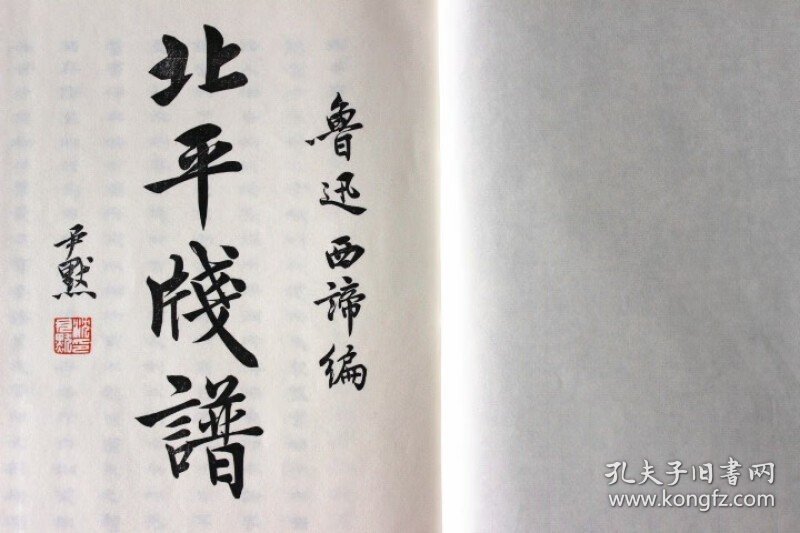 魯迅西諦編
北平牋譜
尹默
孔夫子旧書网
www.kongfz.com